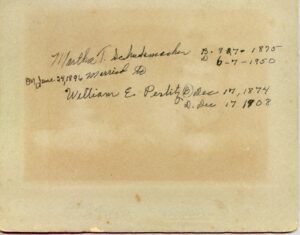 Martha T. Schudemacher B. 9-27-1875
D 6-7-1950
On June 24, 1896 Married to
William E. Pestitz B Dec 17, 1874
D. Dec 17 1908